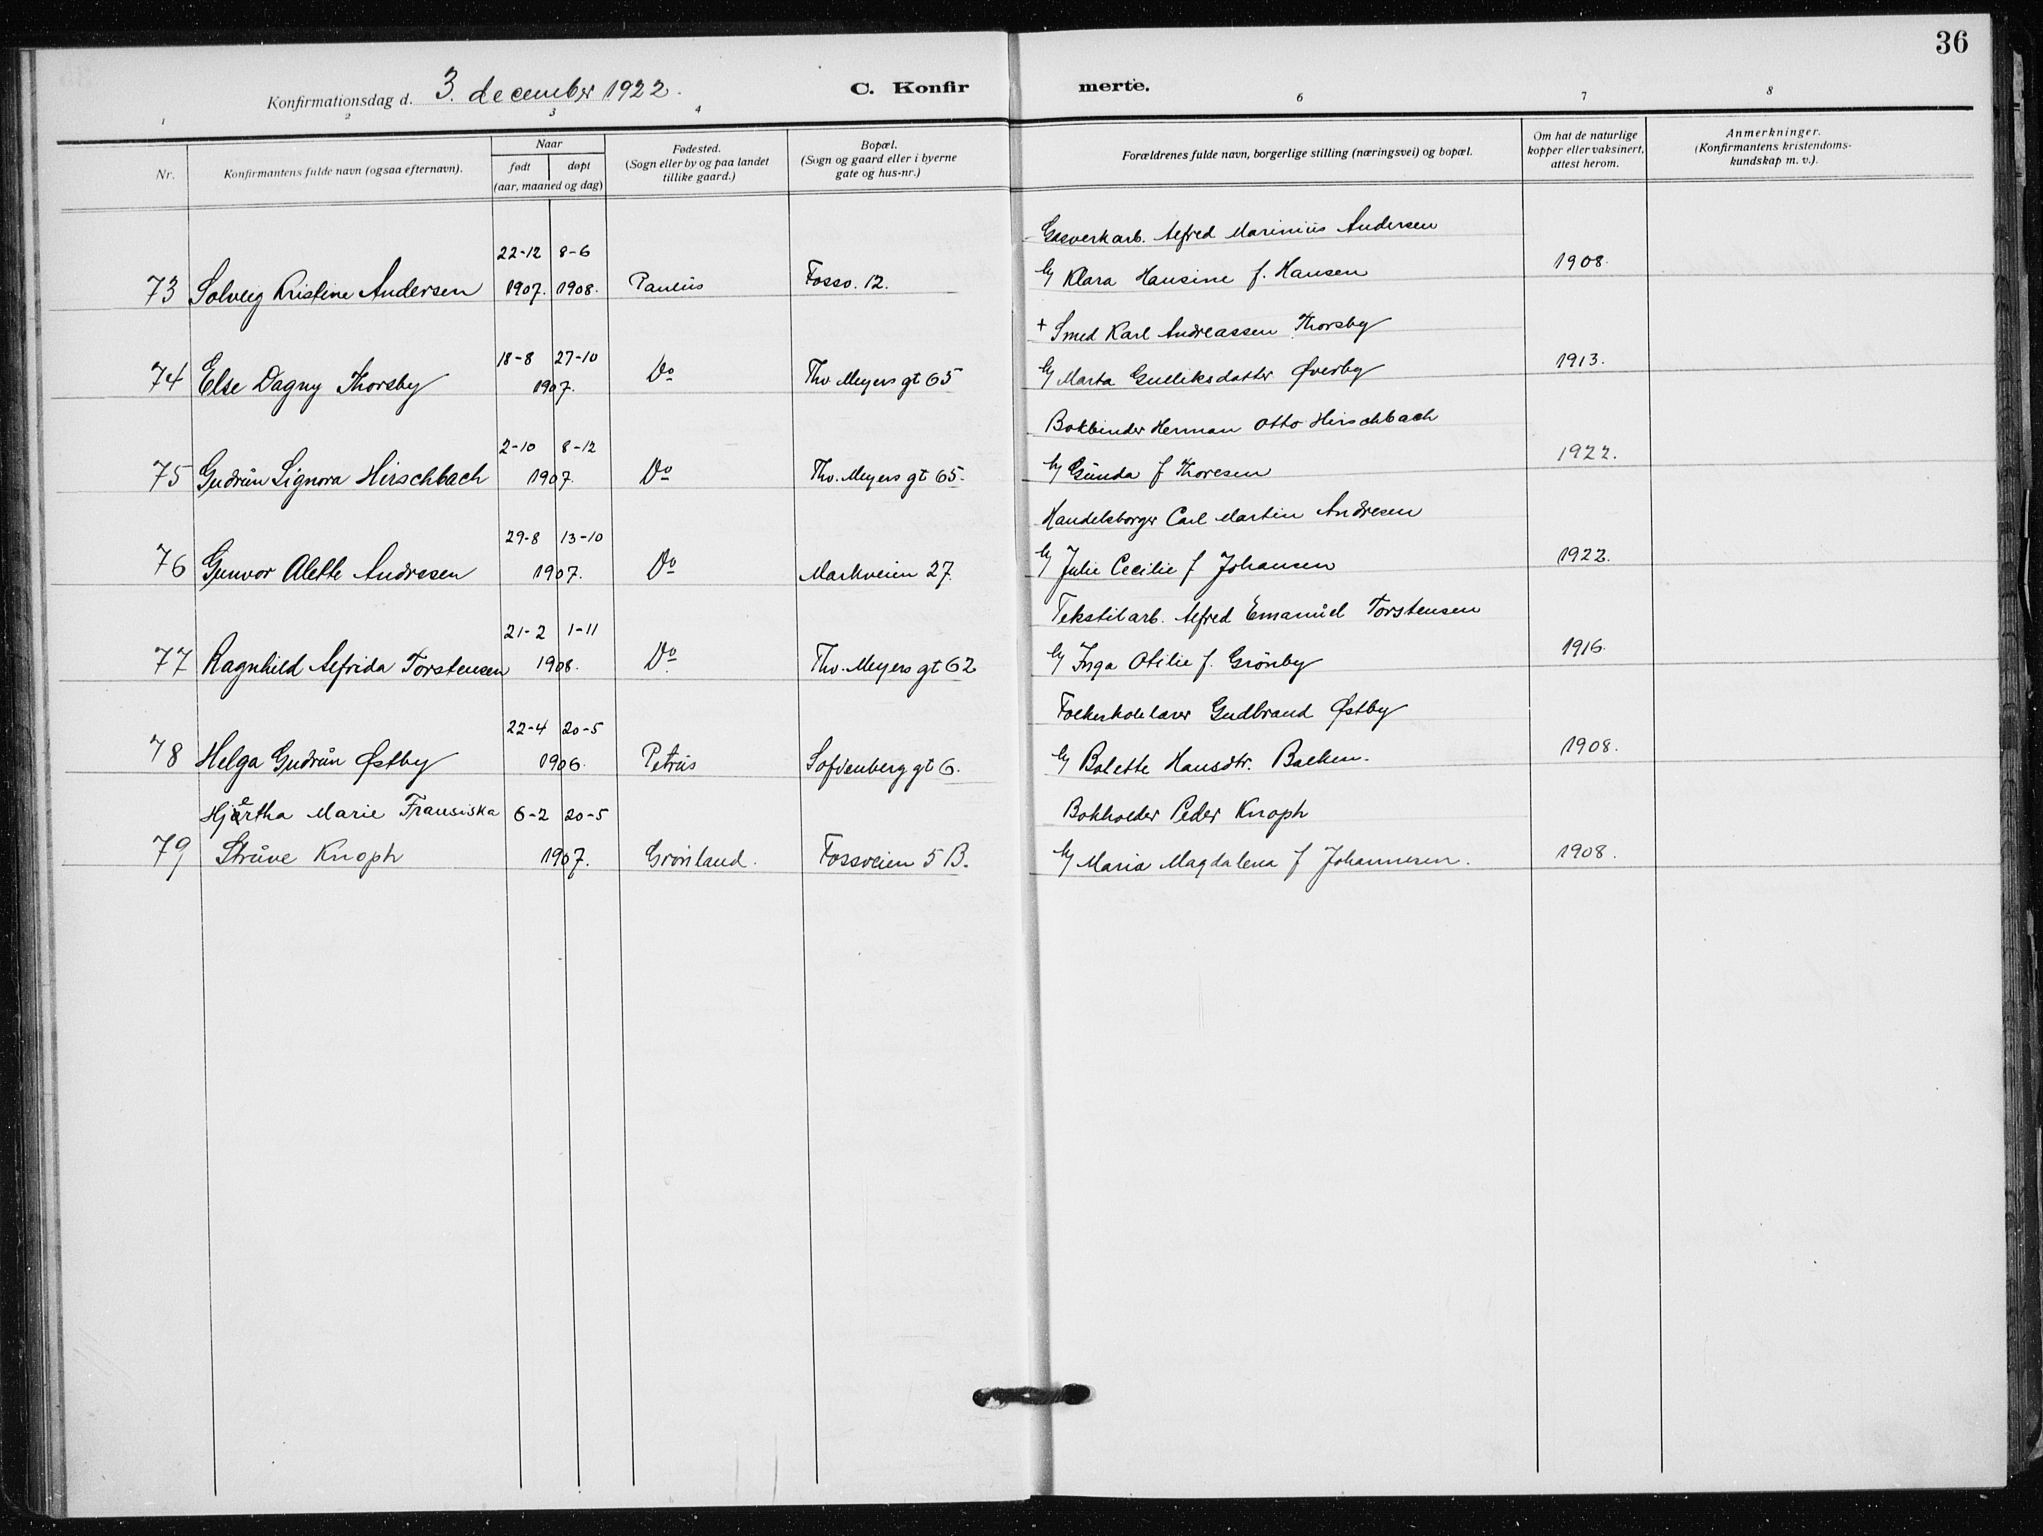 36
Konfirmationsdag d. 3. december 1922.
C. Konfirmerte.
1 2 3 4 6 7 8
Nr.
Konfirmantens fulde navn (ogsaa efternavn).
Naar
født døpt
(aar, maaned og dag)
Fødested.
(Sogn eller by og paa landet
tillike gaard.)
Bopæl.
(Sogn og gaard eller i byerne
gate og hus-nr.)
Forældrenes fulde navn, borgerlige stilling (næringsvei) og bopæl.
Om hat de naturlige
kopper eller vaksinert,
attest herom.
Anmerkninger.
(Konfirmantens kristendoms-
kundskap m. v.).
22-12 8-6 Gasverkarb. Alfred Marinius Andersen
73 Solveig Kristine Andersen 1907. 1908. Paulus Fossv. 12. Klara Hansine f. Hansen 1908.
+ Smed Karl Andreassen Thorsby
18-8 27-10
74 Else Dagny Thorsby 1907. Do Thv Meyers gt 65 Marta Gulliksdatter Øverby 1913.
2-10 8-12 Bokbinder Herman Otto Hirschbach
75 Gudrun Signora Hirschbach 1907. Do Thv. Meyers gt 65. Gunda f Thoresen 1922.
29-8 13-10 Handelsborger Carl Martin Andresen
76 Gunvor Alette Andresen 1907. Do Markveien 27. Julie Cecilie f Johansen 1922.
21-2 1-11 Tekstilarb. Alfred Emanuel Torstensen
77 Ragnhild Alfrida Torstensen 1908. Do Thv. Meyers gt 62 Inga Otilie f. Grønby 1916.
22-4 20-5 Folkeskolelærer Gudbrand Østby
78 Helga Gudrun Østby 1906. Petrus Sofienberg gt 6. Bolette Hansdtr. Bakken. 1908.
Hjertha Marie Fransiska 6-2 20-5 Bokholder Peder Knoph
79 Struve Knoph 1907. Grønland. Fossveien 5 B. Maria Magdalena f Johannesen. 1908.